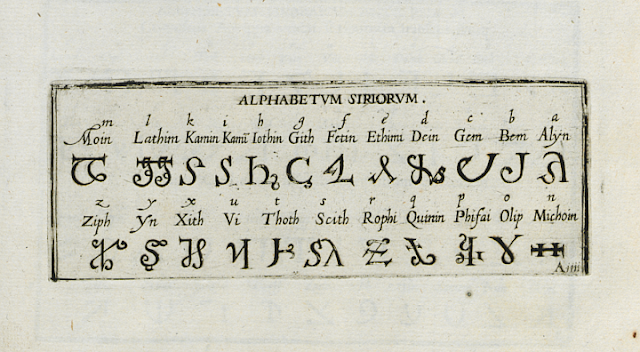 ALPHABETVM SIRIORVM.
m l k i h g f e d c b a
Moin Lathim Kamin Kamī Iothin Gith Fetin Ethimi Dcin Gem Bem Alyn
z y x u t s r q p o n
Ziph Yn Xith Vi Thoth Scith Rophi Quinin Phifai Olip Michoin
A iiii